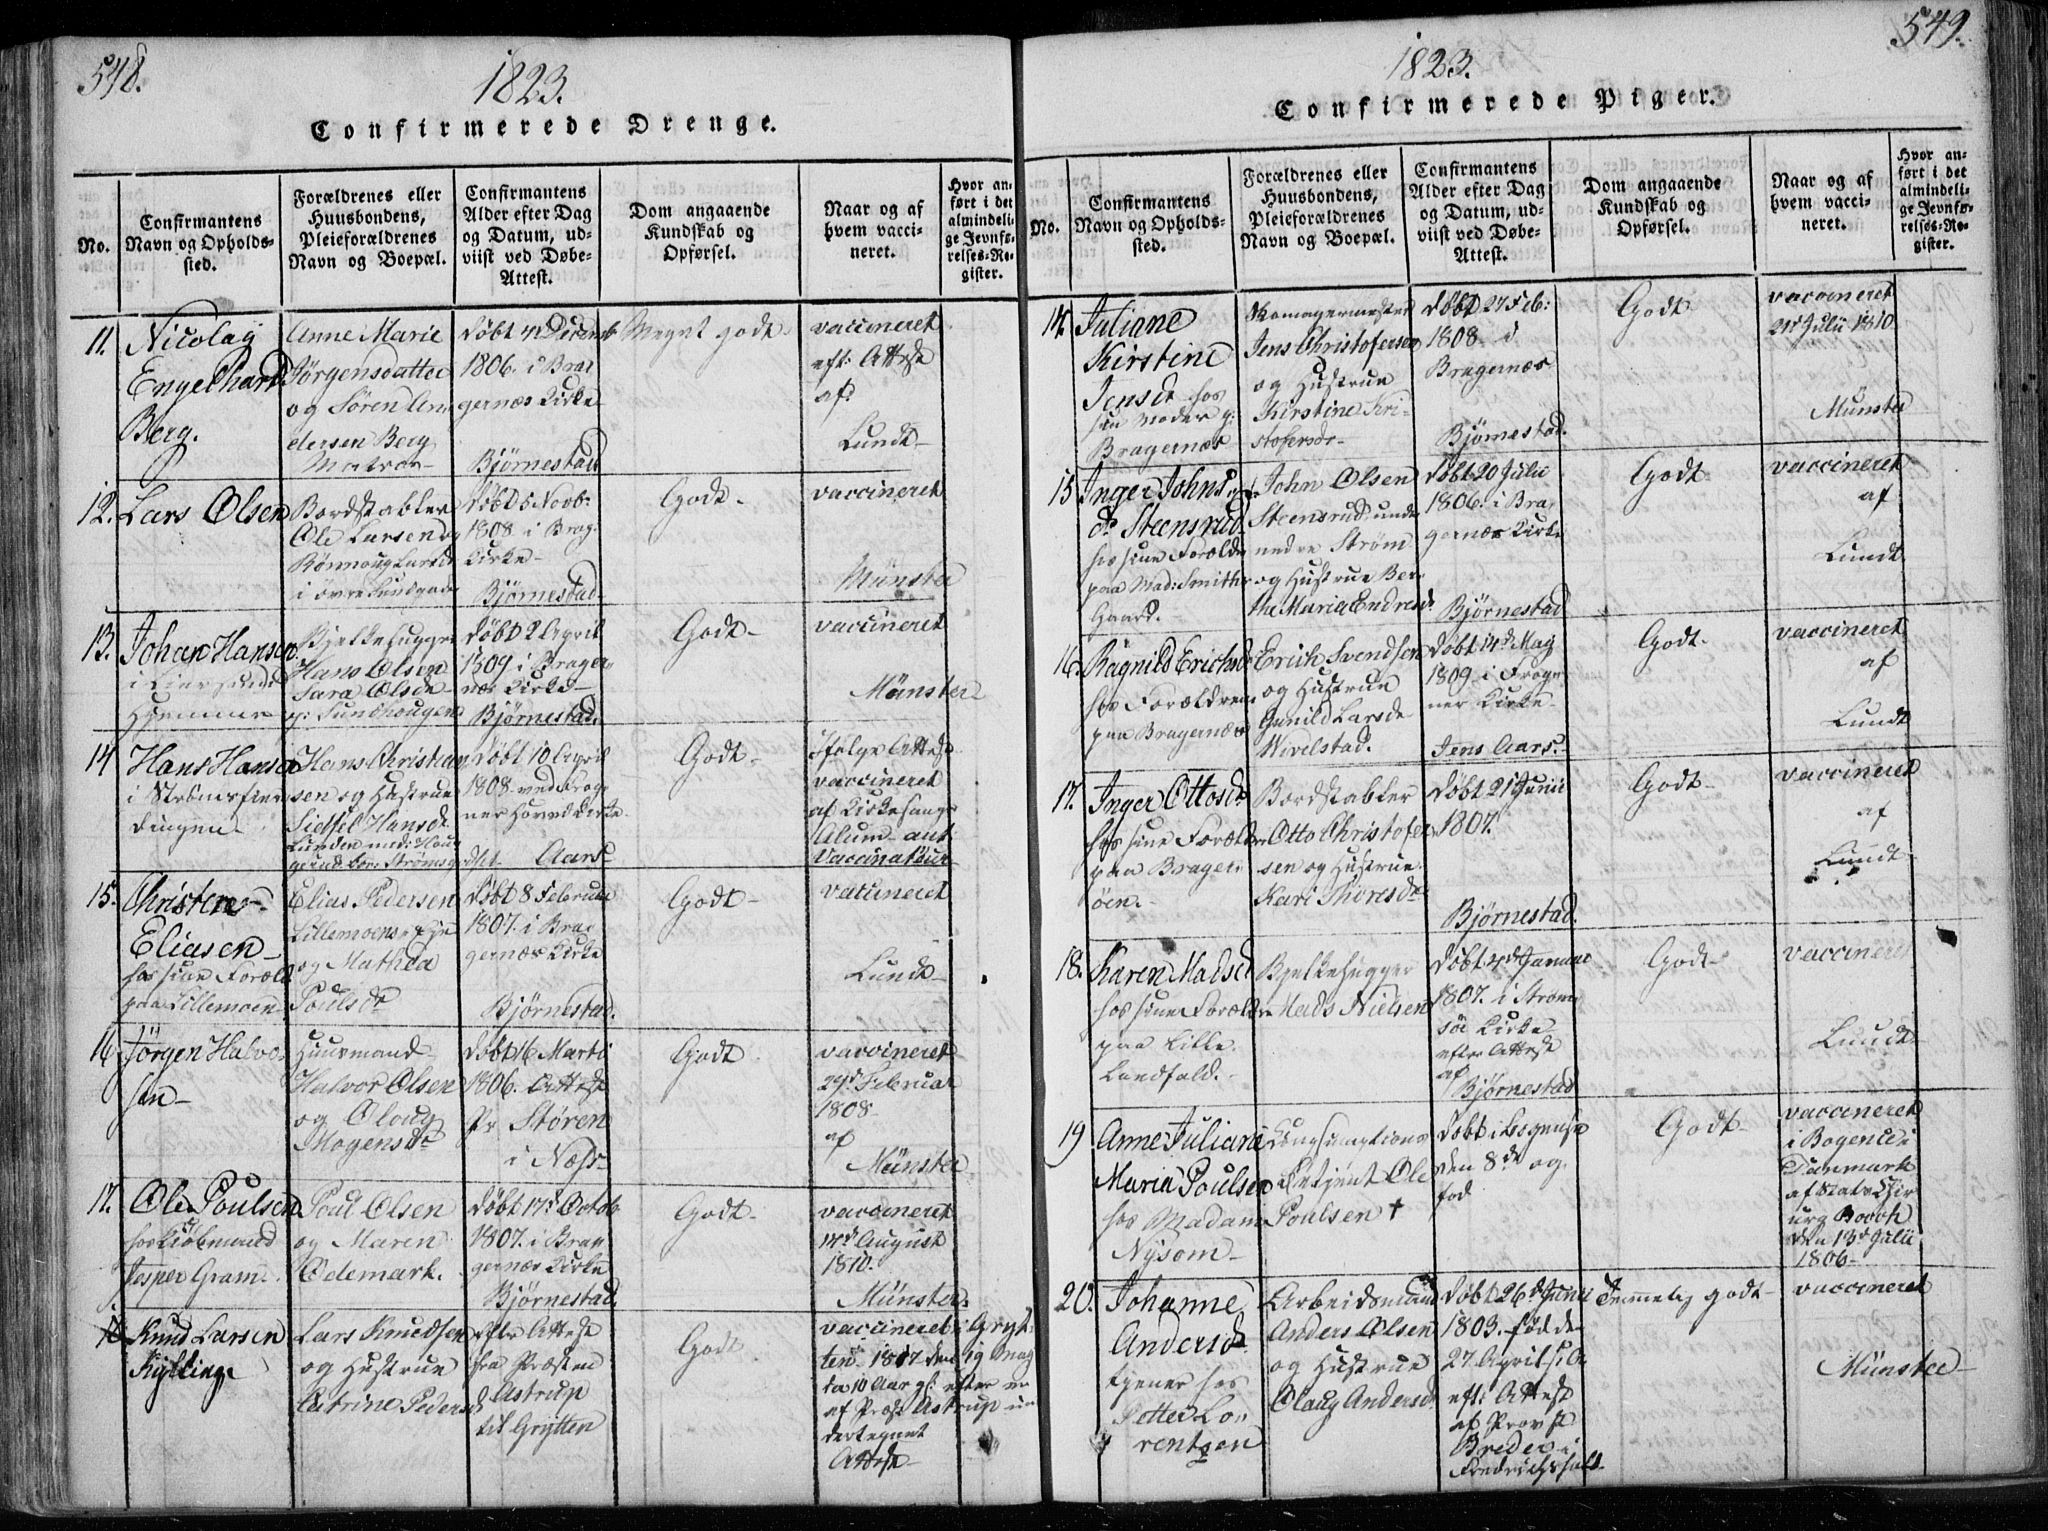 548.
1823.
Confirmerede Drenge.
No.
Confirmantens
Navn og Opholds-
sted.
Forældrenes eller
Huusbondens,
Pleieforældrenes
Navn og Boepæl.
Confirmantens
Alder efter Dag
og Datum, ud-
viist ved Døbe-
Attest.
Dom angaaende
Kundskab og
Opførsel.
Naar og af
hvem vacci-
neret.
Hvor an-
ført i det
almindeli-
ge Jevnfø-
relses-Re-
gister.
11.
Nicolay
Engelhard
Berg.
Anne Marie
Jørgensdatter
og Søren An-
dersen Berg
Matros
Døbt 4d Decemb
1806. i Bra-
gernæs Kirke
Bjørnestad
Meget godt.
vaccineret
eft: Attest
af
Lundt
12.
Lars Olsen
Bordstabler
Ole Larsen og
Rønnoug Larsd
i øvre Sundgade
Døbt 5 Novb:
1808. i Brag.
Kirke
Bjørnestad.
Godt
vaccineret
Münster
13.
Johan Hansen
i
Hjemme
Bjelkehugger
Hans Olsen
Sara Olsdr
p: Sundhougen
Døbt 2 April
1809 i Brager-
næs Kirke
Bjørnestad.
Godt
vaccineret
Münster
14
Hans Hansen
i Strømsfier-
dingen
Hans Christian
sen og Hustrue
Sidsel Hansdr
Lunden
Døbt 10 April
1808 ved Frog-
ner Hovedkirke
Aars
Godt
Ifølge Attest
vaccineret
af Kirkesanger
Alum aut
Vaccinateur
15.
Christen
Eliasen
hos sine Foræld
paa Lillemoen
Elias Pedersen
Lillemoens eje
og Mathea
Poulsdr
Døbt 8 Februar
1807. i Bra-
gernæs Kirke
Bjørnestad.
Godt
vaccineret
Lundt
16
Jörgen Halvor
sen
Huusmand
Halvor Olsen
og Oloug
Mogensdr
Døbt 16 Marti
1806. Attest
Pr Støren
i Næss
Godt
vaccineret
29d Februar
1808
af
Münster
17.
Ole Poulsen
hos Kiøbmand
Jesper Gram.
Poul Olsen
og Maren
Odemark.
Døbt 17d Octob
1807. i Bra-
gernæs Kirke
Bjørnestad.
Godt
vaccineret
14d August
1810.
Münster.
18
Knud Larsen
Kylling
Lars Knudsen
og Hustrue
Catrine Pedersd
efter Attest
fra Præsten
Astrup
til Grytten
Godt
vaccineret i Gryt-
ten 1817 den 19 May
da 10 Aar gl. efter en
af Præst Astrup un
dertegnet
Attest
549.
1823.
Confirmerede Piger.
No.
Confirmantens
Navn og Opholds-
sted.
Forældrenes eller
Huusbondens,
Pleieforældrenes
Navn og Boepæl.
Confirmantens
Alder efter Dag
og Datum, ud-
viist ved Døbe-
Attest.
Dom angaaende
Kundskab og
Opførsel.
Naar og af
hvem vacci-
neret.
Hvor an-
ført i det
almindeli-
ge Jevnfø-
relses-Re-
gister.
14.
Juliane
Kirstine
Jensdr hos
sin Moder p:
Bragernæs
Skomagermester
Jens Christofersen
og Hustrue
Kirstine Kri-
stofersdr
Døbt 27 Feb:
1808 i
Bragernæs
Bjørnestad.
Godt
vaccineret
21d Julii 1810.
Münster
15
Inger Johns
dr Steensrud
hos sine Forældre
paa Mad: Smiths
Gaard.
John Olsen
Steensrud unde
nedre Strøm
og Hustrue Ber-
the Maria Endresdr
Døbt 20 Julii
1806. i Bra-
gernæs Kirke
Bjørnestad
Godt
vaccineret
af
Lundt
16.
Ragnild Erichsdr
hos Forældrene
paa Bragernæs
Erich Svendsen
og Hustrue
Gunild Larsdr
Wivelstad.
Døbt 14d May
1809 i Frog-
ner Kirke
Jens Aars.
Godt
vaccineret
af
Lundt
17.
Inger Ottosdr
hos sine Forældre
paa Brager-
øen.
Bordstabler
Otto Christofer
sen og Hustrue
Kari Thoresdr
Døbt 21 Junii
1807.
Bjørnestad.
Godt
vaccineret
af
Lundt
18.
Karen Madsdr
hos sine Forældre
paa Lille
Landfald.
Bjelkehugger
Mads Nielsen
Døbt 4d Januar
1807. i Strøm
søe Kirke
efter Attest
af
Bjørnestad
Godt
vaccineret
Lundt
19
Anne Juliane
Maria Poulsen
hos Madam
Nysom
Consumptions
Betjent Ole
Poulsen †
Døbt i Bogense
den 8de og
fød
Godt
vaccineret
i Bogense i
Danmark
af Stats Chir
urg Booch
den 13d Julii
1806
20.
Johanne
Andersdr
tjener hos
Petter Lo-
rentzen
Arbeidsmand
Anders Olsen
og Hustrue
Olaug Andersdr
Døbt 26d Junii
1803. fød d
27 April s. A.
eft: Attest
af Provst
Breder i
Fredrichshald
Temmelig godt
vaccineret
Münster